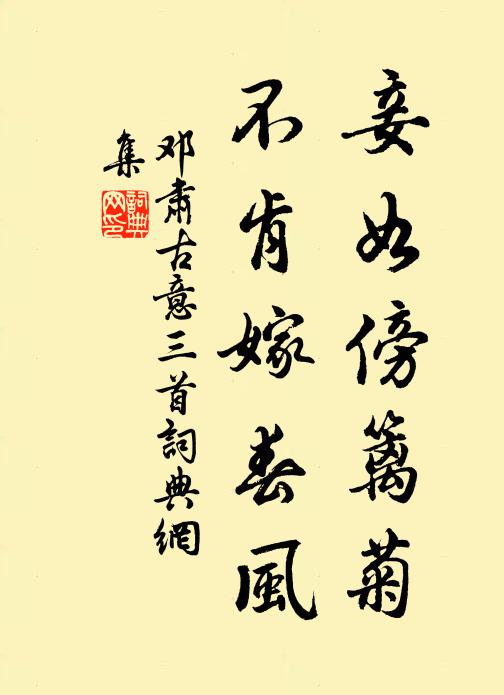 妾如傍篱菊
不肯嫁春風
邓肅古意三首詞典網
集
詞典
网印